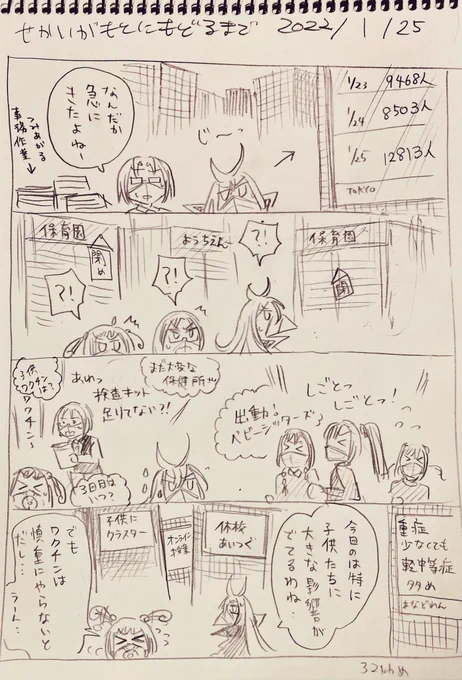 せかいがもとにもどるまで 2022/1/25
1/23 9468人
1/24 8503人
1/25 12813人
TOKYO
じーっ
なんだか
急に
きたよねー
つみあがる
事務作業↓
保育園
閉
ようちえん
保育園
閉め
?!
?!
?!
しごとっ
しごとっ!
出動!
ベビーシッターズ
まだ大丈夫
保健所!!!
あれっ
検査キット
足りてない?!
3日目は
いつ?
子供
ワクチンは?
ワクチン〜
重症
少なくても
軽中等症
多め
おなどれん
今回のは特に
子供たちに
大きな影響が
でてるわね…
休校
あいつぐ
オンライン
授業
子供に
クラスター
でも
ワクチンは
慎重にやらないと
だし…
うーん…
32にちめ